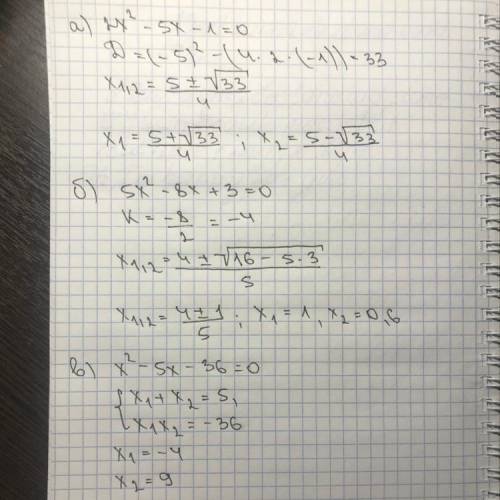 а) 2x² - 5x - 1 = 0
D = (-5)² - (4 · 2 · (-1)) = 33
x₁,₂ = (5 ± √33)/4
x₁ = (5 + √33)/4 ; x₂ = (5 - √33)/4
б) 5x² - 8x + 3 = 0
K = -8/2 = -4
x₁,₂ = (4 ± √(16 - 5·3))/5
x₁,₂ = (4 ± 1)/5 ; x₁ = 1, x₂ = 0,6
в) x² - 5x - 36 = 0
{ x₁ + x₂ = 5,
x₁x₂ = -36
x₁ = -4
x₂ = 9